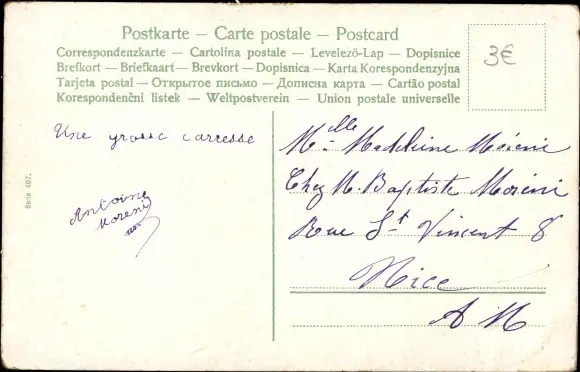 Postkarte — Carte postale — Postcard
Correspondenzkarte — Cartolina postale — Levelezö-Lap — Dopisnice
Brefkort — Briefkaart — Brevkort — Dopisnica — Karta Korespondenzyjna
Tarjeta postal — Открытое письмо — Дописна карта — Cartão postal
Korespondenční listek — Weltpostverein — Union postale universelle
3€
Une grosse carresse
Antoine
Moreni
Serie 4071
Mlle Madeleine Moreni
Chez M. Baptiste Moreni
Rue St Vincent 8
Nice
A M